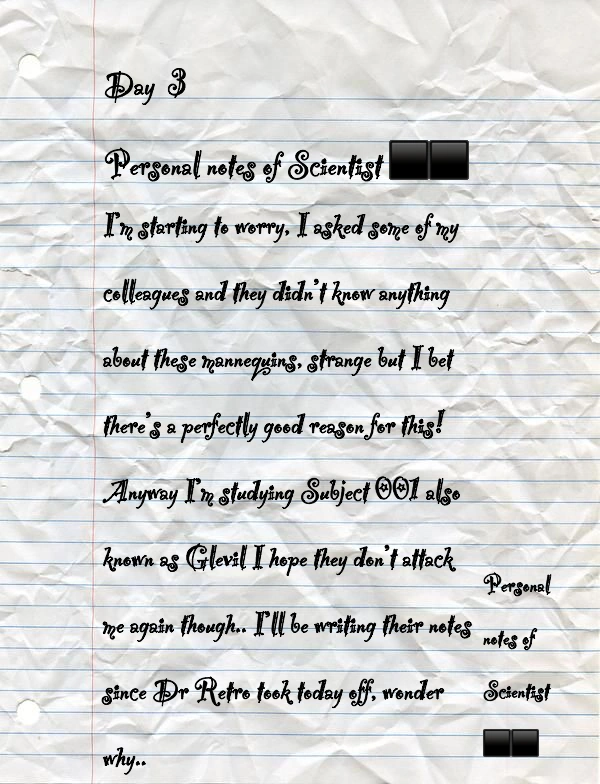 Day 3
Personal notes of Scientist ⬛⬛
I'm starting to worry, I asked some of my
colleagues and they didn't know anything
about these mannequins, strange but I bet
there's a perfectly good reason for this!
Anyway I'm studying Subject 001 also
known as Glevil I hope they don't attack
me again though.. I'll be writing their notes
since Dr Retro took today off, wonder
why..
Personal
notes of
Scientist
⬛⬛